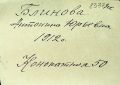 Блинова
Антонина Юрьевна
1912г.
Конопатная 50